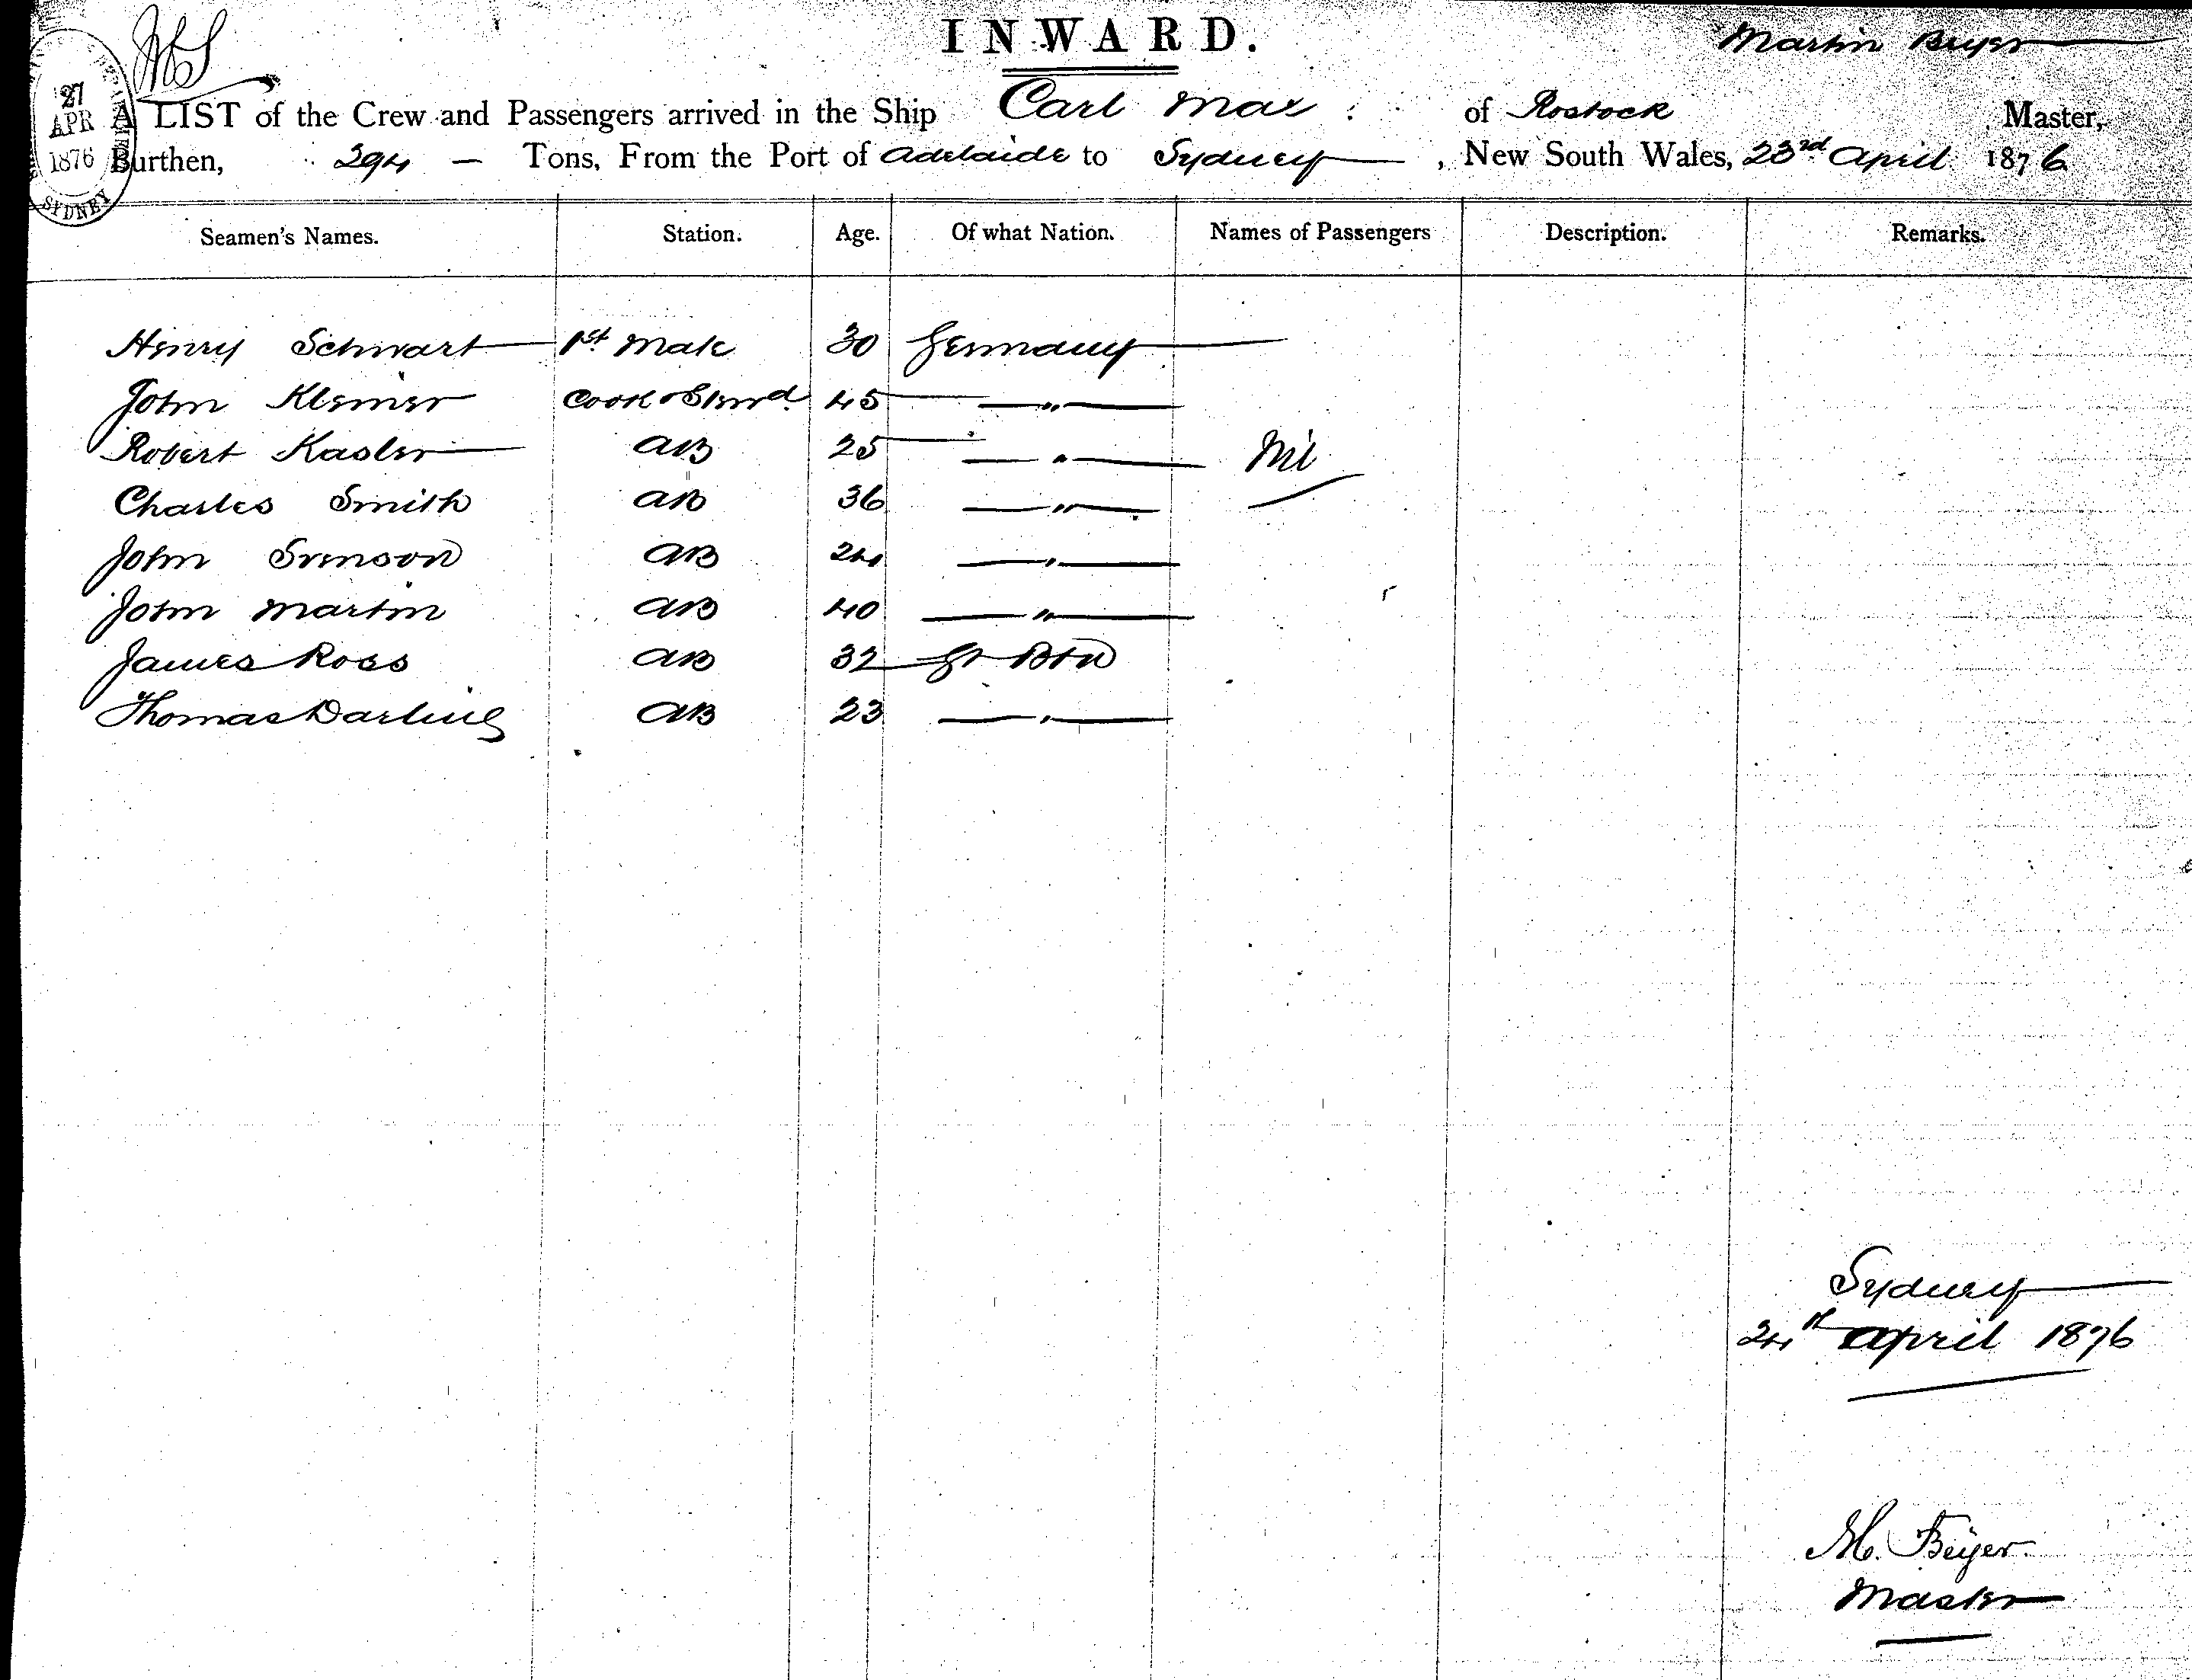 INWARD.
Martin Beyer
27
APR
1876
SYDNEY
A LIST of the Crew and Passengers arrived in the Ship Carl Max of Rostock Master,
Burthen, 294 — Tons, From the Port of Adelaide to Sydney, New South Wales, 23rd April 1876
Seamen's Names. Station. Age. Of what Nation. Names of Passengers Description. Remarks.
Henry Schwart 1st Mate 30 Germany
John Klemer Cook & Stewd. 45 — " —
Robert Kasler AB 25 — " — Nil
Charles Smith AB 36 — " —
John Svenson AB 24 — " —
John Martin AB 40 — " —
James Ross AB 32 Gt Btn
Thomas Darling AB 23 — " —
Sydney
24th April 1876
M. Beyer.
Master